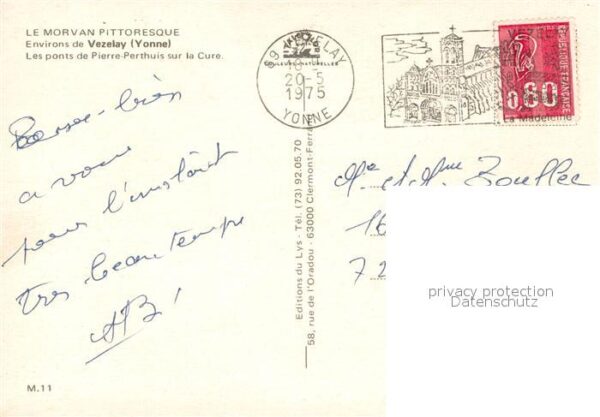 LE MORVAN PITTORESQUE
Environs de Vezelay (Yonne)
Les ponts de Pierre-Perthuis sur la Cure.
89 VEZELAY
20-5
1975
YONNE
0,80
REPUBLIQUE FRANÇAISE
La Madeleine
bien
a vous
pour l'instant
très beau temps
AB!
Editions du Lys - Tél. (73) 92.05.70
58, rue de l'Oradou - 63000 Clermont-Ferra
Mr et Mme
16
72
privacy protection
Datenschutz
M.11